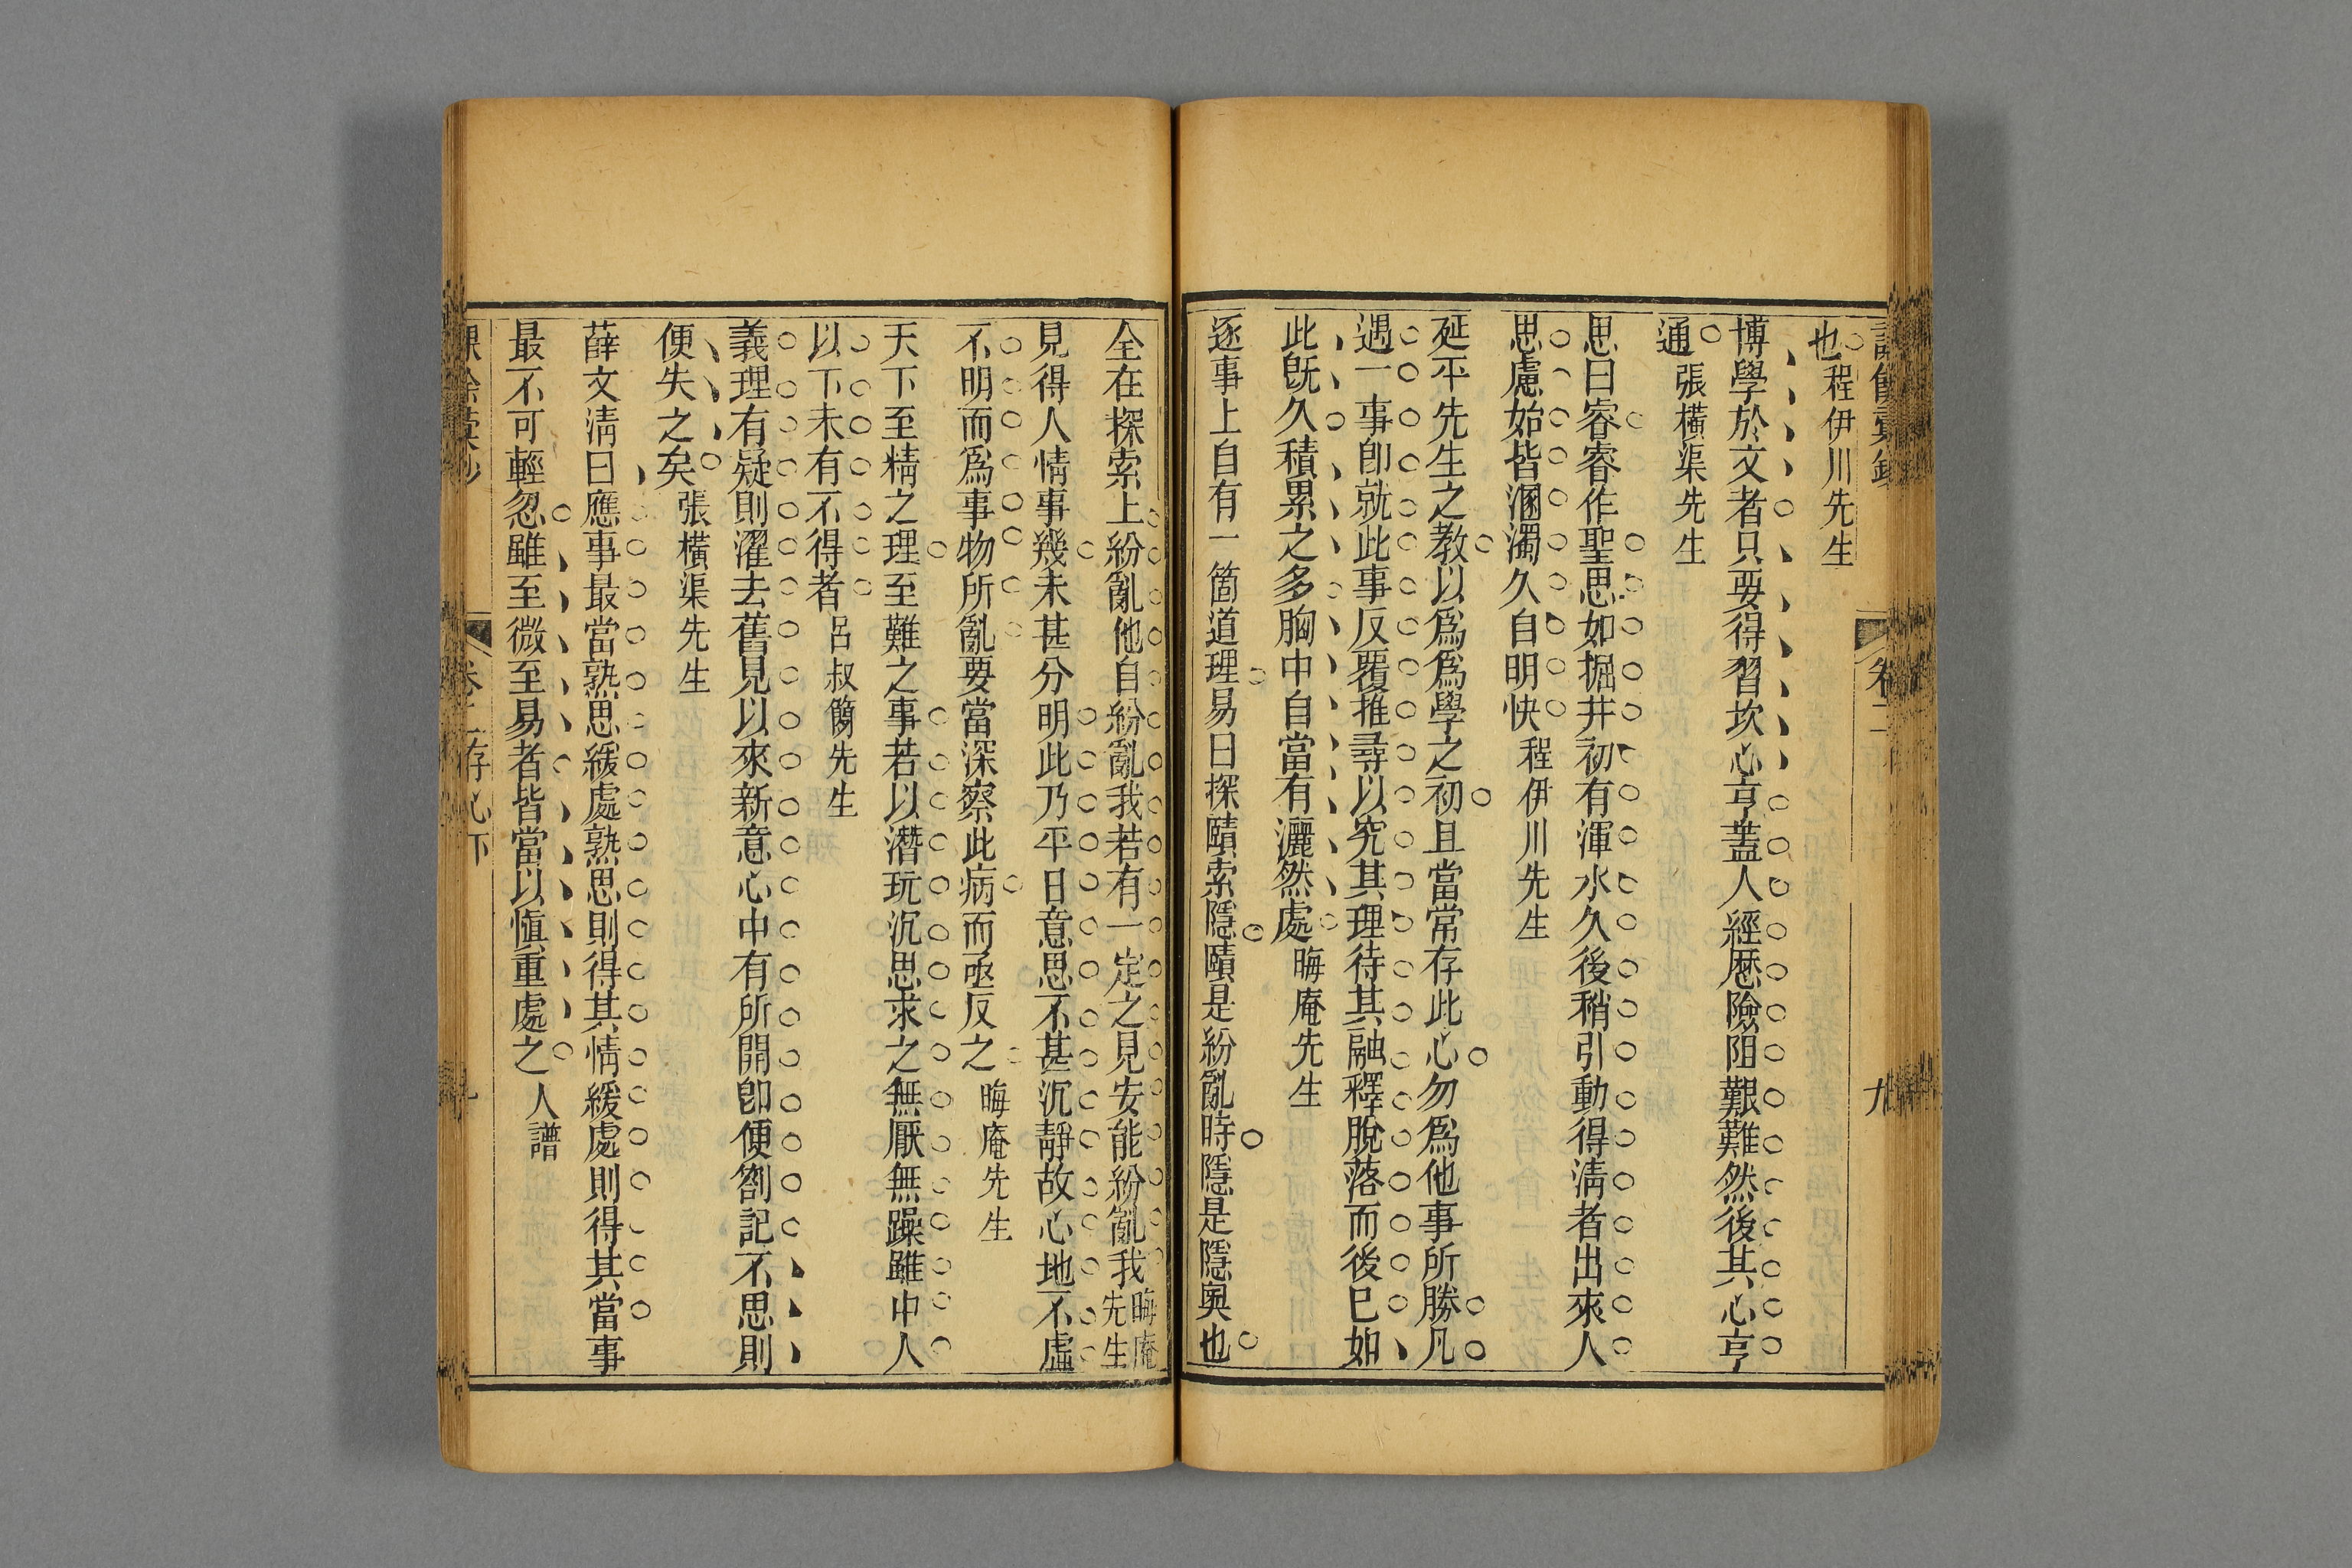 也程伊川先生
博學於文者只要得習坎心亨蓋人經歷險阻艱難然後其心亨
通張橫渠先生
思曰睿睿作聖思如掘井初有渾水久後稍引動得淸者出來人
思慮始皆溷濁久自明快程伊川先生
延平先生之敎以爲爲學之初且當常存此心勿爲他事所勝凡
遇一事卽就此事反覆推尋以究其理待其融釋脫落而後已如
此旣久積累之多胸中自當有灑然處晦庵先生
逐事上自有一箇道理易曰探賾索隱賾是紛亂時隱是隱奧也
全在探索上紛亂他自紛亂我若有一定之見安能紛亂我晦庵先生
見得人情事幾未甚分明此乃平日意思不甚沉靜故心地不虛
不明而爲事物所亂要當深察此病而亟反之晦庵先生
天下至精之理至難之事若以潛玩沉思求之無厭無躁雖中人
以下未有不得者呂叔簡先生
義理有疑則濯去舊見以來新意心中有所開卽便劄記不思則
便失之矣張橫渠先生
薛文淸曰應事最當熟思緩處熟思則得其情緩處則得其當事
最不可輕忽雖至微至易者皆當以愼重處之人譜
卷二存心下